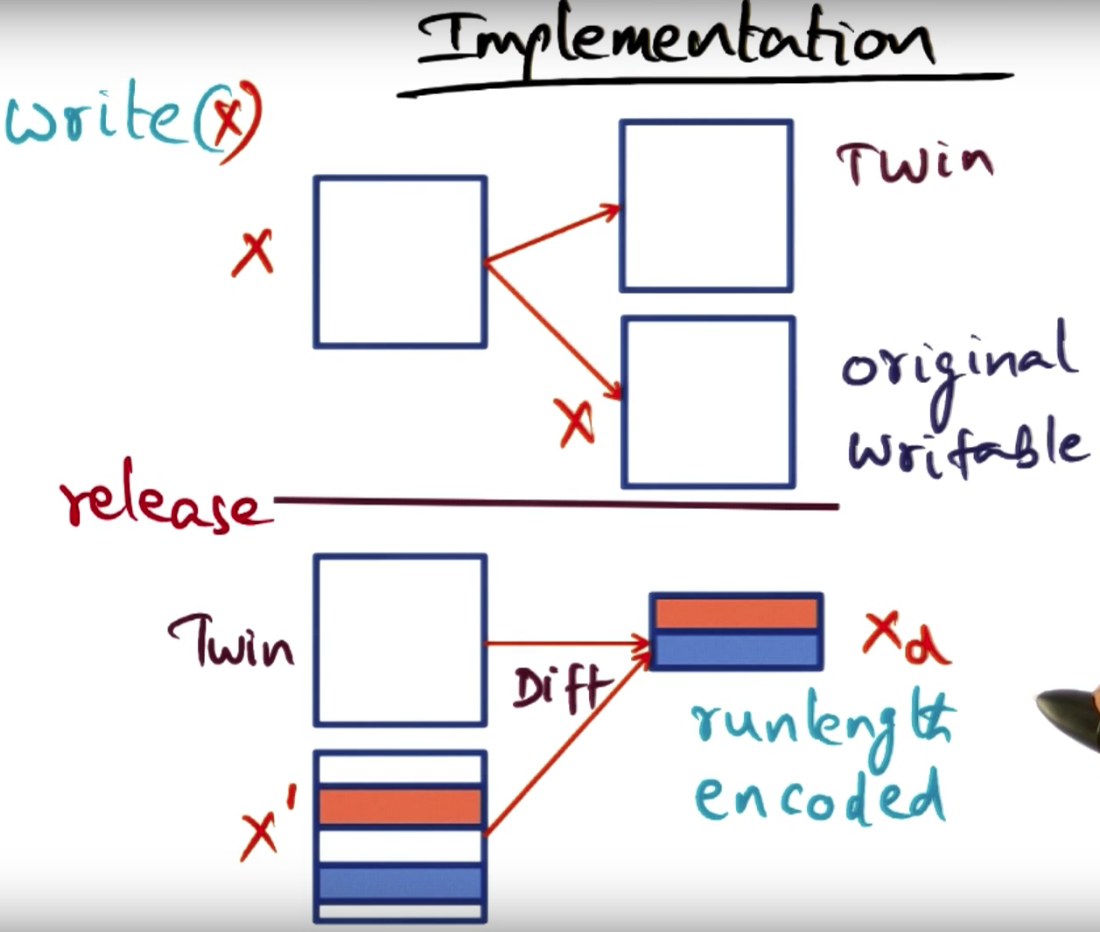 Implementation
write(x)
Twin
X
original
writable
X
release
Twin
Diff
Xd
runlength
encoded
X'